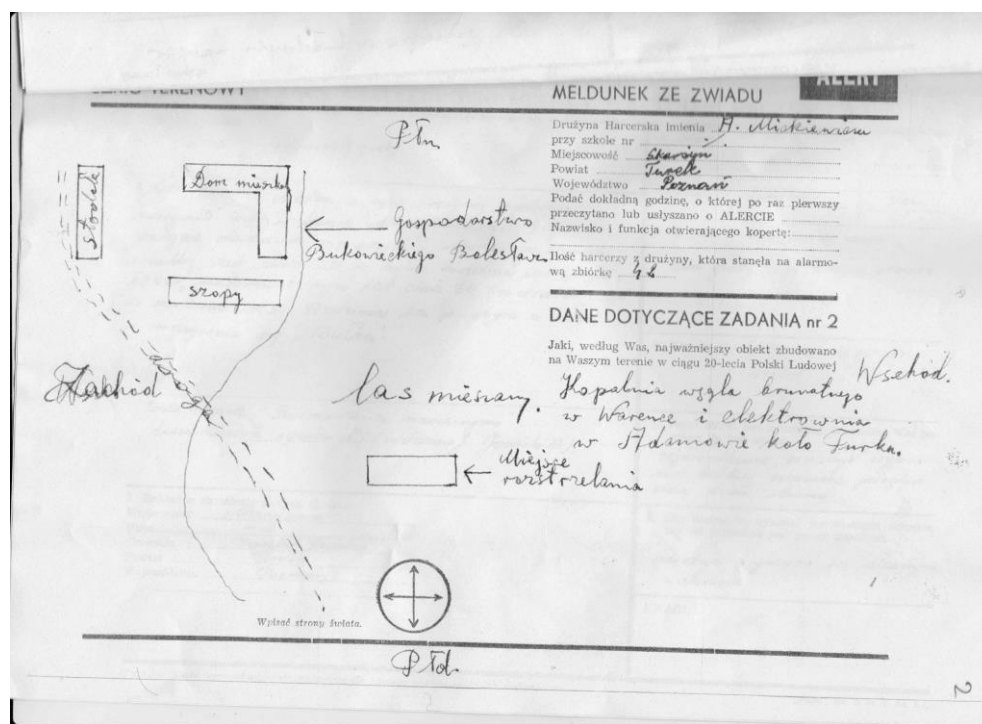 MELDUNEK ZE ZWIADU
ALERT
Drużyna Harcerska imienia A. Mickiewicza
przy szkole nr
Miejscowość Skarżyn
Powiat Turek
Województwo Poznań
Podać dokładną godzinę, o której po raz pierwszy
przeczytano lub usłyszano o ALERCIE
Nazwisko i funkcja otwierającego kopertę:
Ilość harcerzy z drużyny, która stanęła na alarmo-
wą zbiórkę 42
DANE DOTYCZĄCE ZADANIA nr 2
Jaki, według Was, najważniejszy obiekt zbudowano
na Waszym terenie w ciągu 20-lecia Polski Ludowej
Kopalnia węgla brunatnego
w Warence i elektrownia
w Adamowie koło Turku.
Płn.
stodoła
Dom mieszkal
Gospodarstwo
Bukowieckiego Bolesława
szopy
Zachód
droga
las mieszany.
Wschód.
Miejsce
rozstrzelania
Wpisać strony świata.
Płd.
2